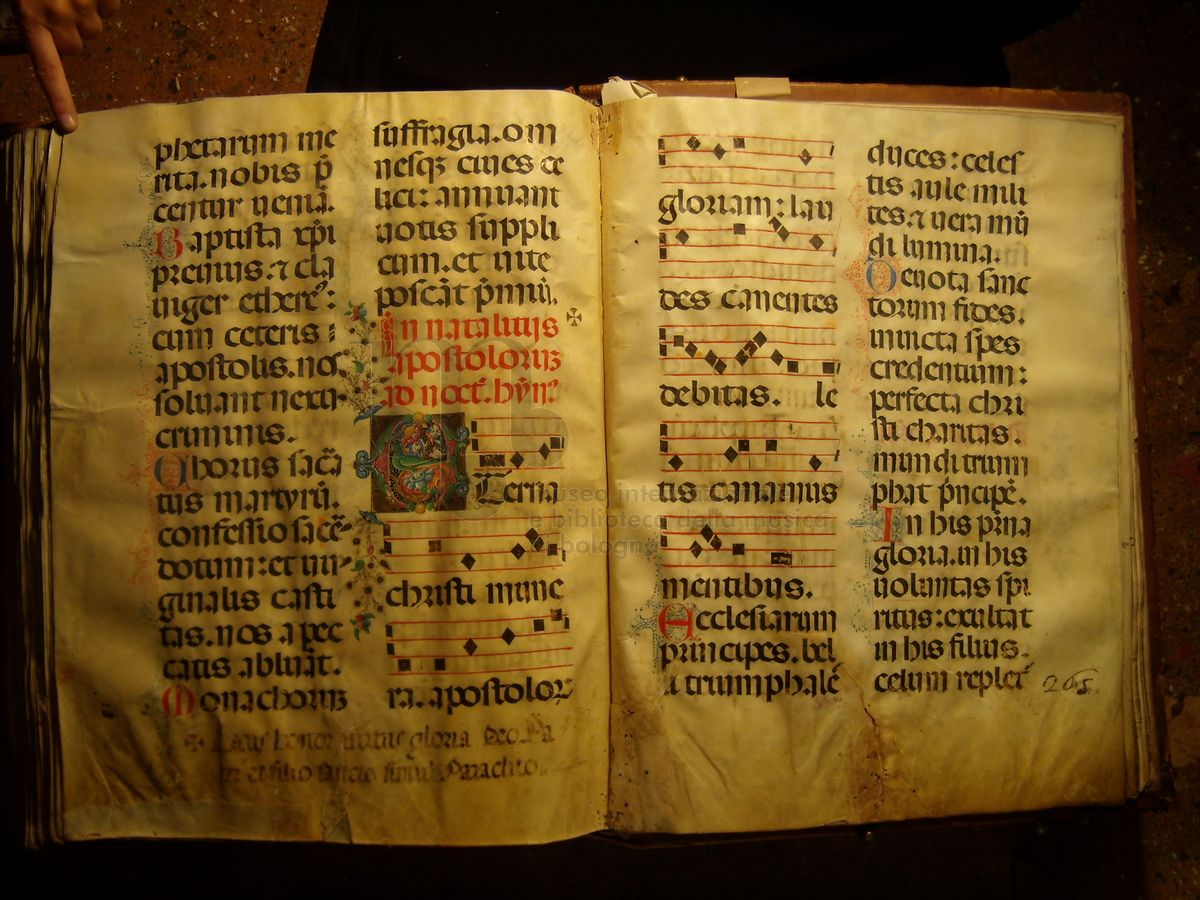 phetarum me
rita. nobis p̄
centur ueniā.
Baptista xp̄i
preuius. ⁊ cla
uiger ethereꝰ:
cum ceteris
apostolis. nos
soluant nexu
criminis.
Chorus sac̄
tus martyrū.
confessio sacē
dotum: et uir
ginalis casti
tas. nos a pec
catis abluāt.
Monachorum
suffragia. om
nesqꝫ ciues ce
lici: annuant
uotis suppli
cum. et uite
poscāt p̄miū.
In natalitijs
apostolorum
ad noct̄. hȳn⁹
Eterna
christi mune
ra. apostolor
✠ Laus honor uirtus gloria Deo Pa
tri et filio sancto simul Paraclito..
gloriam: lau
des canentes
debitas. le
tis canamus
mentibus.
Ecclesiarum
principes. bel
li triumphalē
duces: celes
tis aule mili
tes. ⁊ uera mū
di lumina.
Deuota sanc
torum fides.
inuicta spes
credentium:
perfecta chri
sti charitas.
mundi trium
phat p̄ncipē.
In his p̄na
gloria. in his
uoluntas sp̄i
ritus: exultat
in his filius.
celum repleṫ
265.
museo internazionale
e biblioteca della musica
bologna